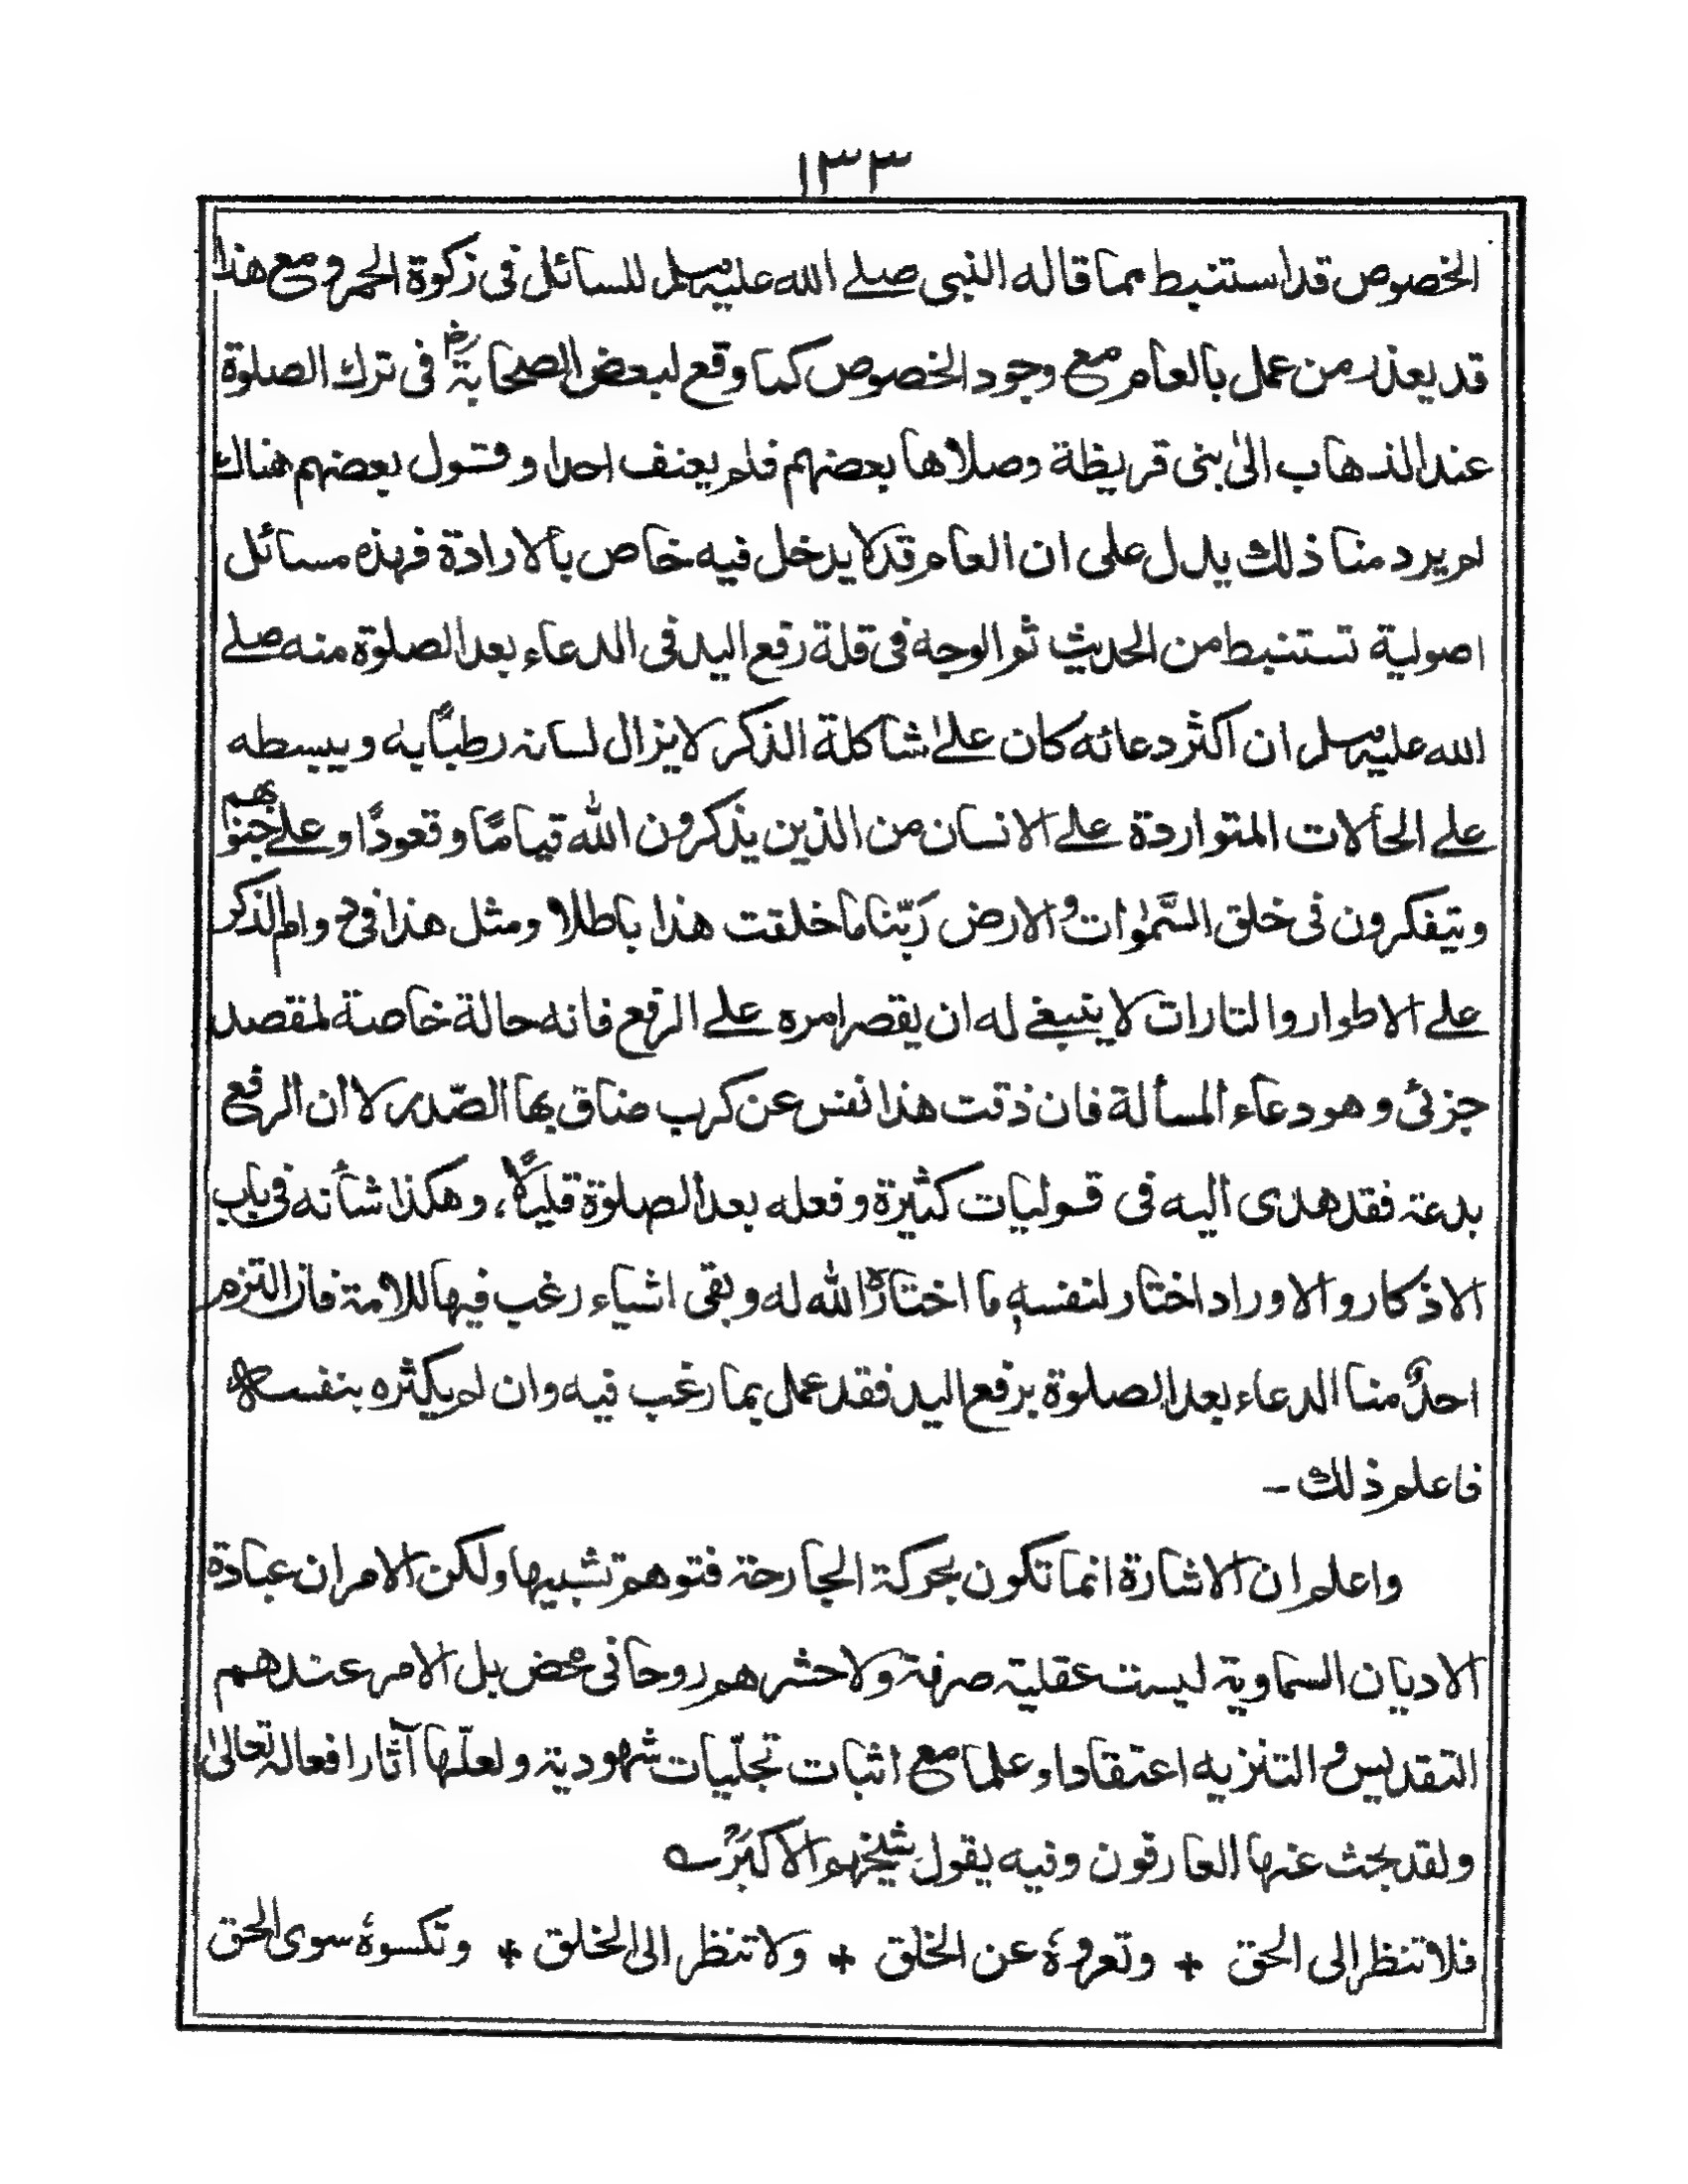 ١٣٣
الخصوص قد استنبط مما قاله النبى صلے الله عليه وسلم للسائل فى زكوة الحمر ومع هذا
قد يعذر من عمل بالعام مع وجود الخصوص كما وقع لبعض الصحابة رض فى ترك الصلوة
عند الذهاب الىٰ بنى قريظة وصلاها بعضهم فلم يعنف احدا وقول بعضهم هناك
لم يرد منا ذلك يدل على ان العام قد لا يدخل فيه خاص بالارادة فهذه مسائل
اصولية تستنبط من الحديث ثم الوجه فى قلة رفع اليد فى الدعاء بعد الصلوة منه صلے
الله عليه وسلم ان اكثر دعائه كان علےٰ شاكلة الذكر لا يزال لسانه رطبًا به ويبسطه
علے الحالات المتواردة علے الانسان من الذين يذكرون الله قيامًا وقعودًا وعلے جنوبهم
ويتفكرون فى خلق السَّمٰوٰات والارض رَبّنا ما خلقت هذا باطلا ومثل هذا فى دوام الذكر
علے الاطوار والتارات لا ينبغے له ان يقصر امره علے الرفع فانه حالة خاصة لمقصد
جزئى وهو دعاء المسألة فان ذقت هذا نفس عن كرب ضاق بها الصّدر لا ان الرفع
بدعة فقد هدى اليه فى قوليات كثيرة وفعله بعد الصلوة قليلًا، وهكذا شأنه فى باب
الاذكار والاوراد اختار لنفسه ما اختاره الله له وبقى اشياء رغب فيها للامة فان التزم
احدٌ منا الدعاء بعد الصلوة برفع اليد فقد عمل بما رغب فيه وان لم يكثره بنفسه
فاعلم ذلك ـ
واعلم ان الاشارة انما تكون بحركة الجارحة فتوهم تشبيها ولكن الامر ان عبادة
الاديان السماوية ليست عقلية صرفة ولا حشرهم روحانى محض بل الامر عندهم
التقديس والتنزيه اعتقادا وعلما مع اثبات تجلّيات شهودية ولعلّها آثار افعاله تعالىٰ
ولقد بحث عنها العارفون وفيه يقول شيخهم الاكبرؒ
فلا تنظر الى الحق + وتعروهٗ عن الخلق + ولا تنظر الى الخلق + وتكسوهٗ سوى الحق